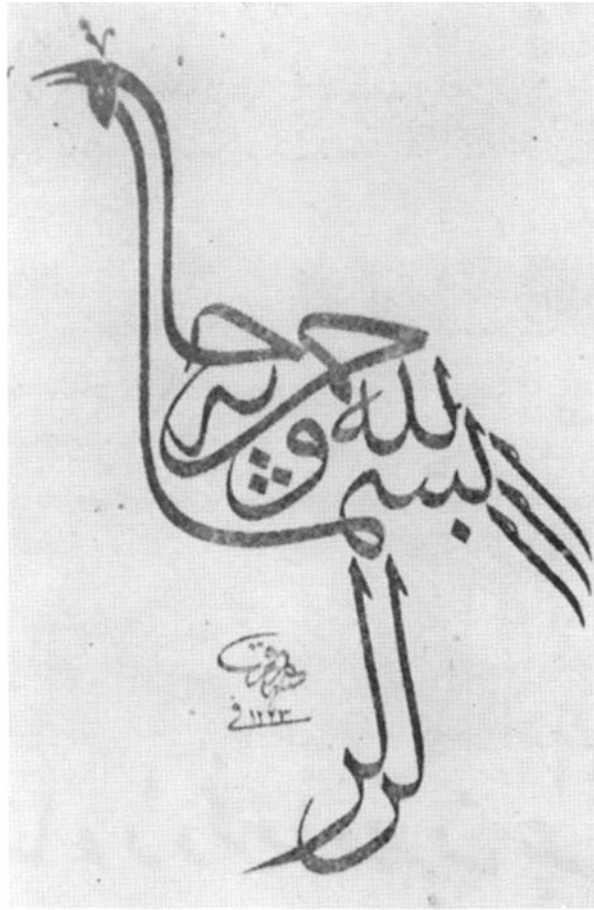 بسم الله الرحمن الرحيم
في ١٢٢٣